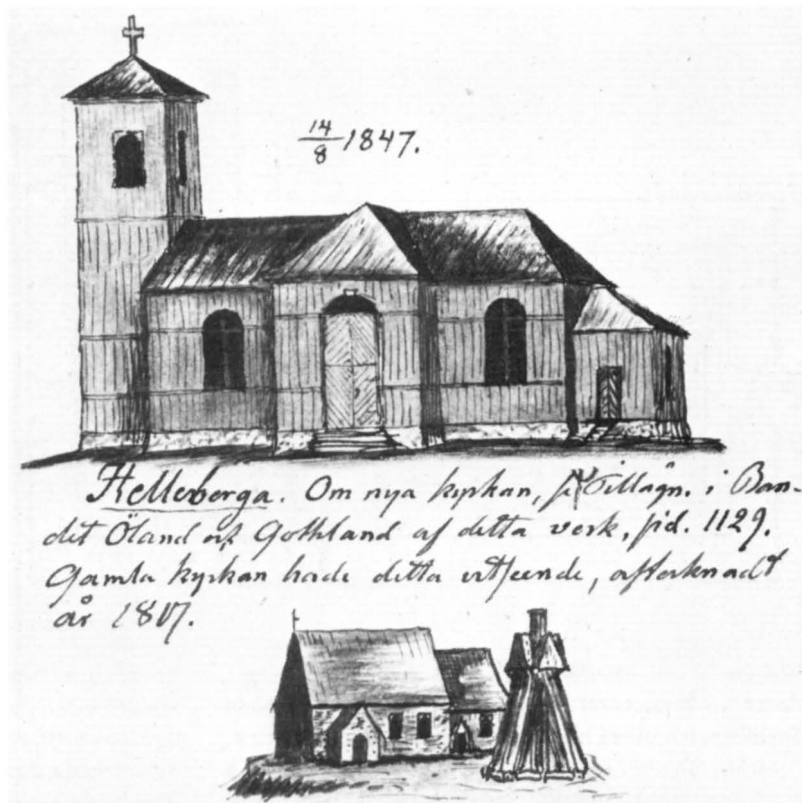 14/8 1847.
Helleberga. Om nya kyrkan, se Tillägn. i Ban-
det Öland och Gothland af detta verk, sid. 1129.
Gamla kyrkan hade detta utseende, aftecknadt
år 1807.